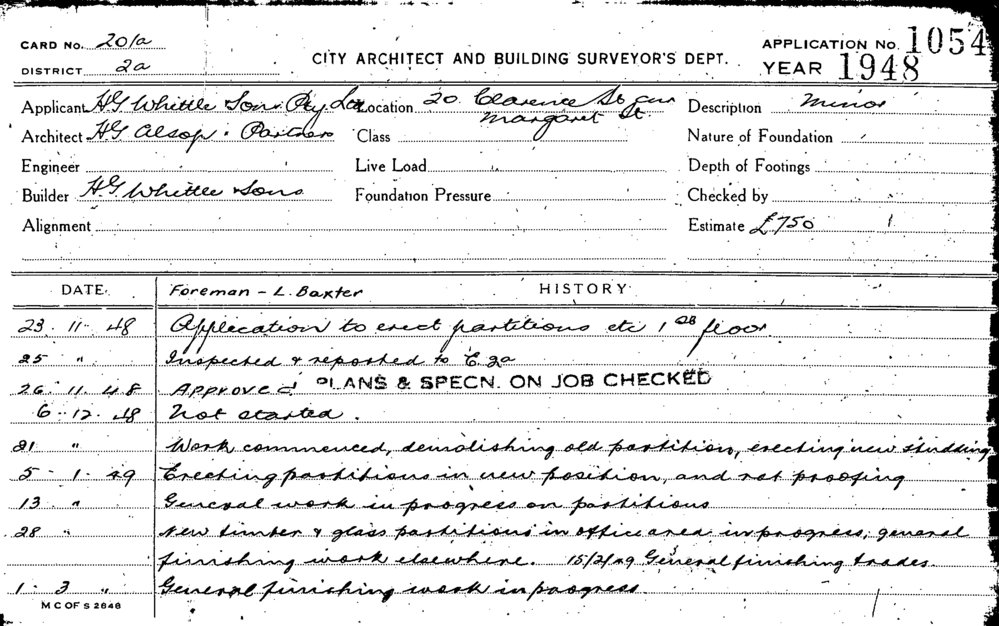 CARD No. 201a
DISTRICT 2a
CITY ARCHITECT AND BUILDING SURVEYOR'S DEPT.
APPLICATION No. 1054
YEAR 1948
Applicant HG Whittle Sons Pty Ltd Location 20 Clarence St cnr Margaret St Description Minor
Architect HG Alsop & Partners Class Nature of Foundation
Engineer Live Load Depth of Footings
Builder H.G Whittle & Sons Foundation Pressure Checked by
Alignment Estimate £750
DATE Foreman - L. Baxter HISTORY
23 - 11 - 48 Application to erect partitions etc 1st floor
25 " Inspected & reported to C 2a
26 - 11 - 48 Approved PLANS & SPECN. ON JOB CHECKED
6 - 12 - 48 Not started.
21 " Work commenced, demolishing old partition, erecting new studding
5 - 1 - 49 Erecting partitions in new position, and rat proofing
13 " General work in progress on partitions
28 " New timber & glass partitions in office area in progress, general
finishing work elsewhere. 15/2/49 General finishing trades
1 - 3 " General finishing work in progress
M C OF S 2646